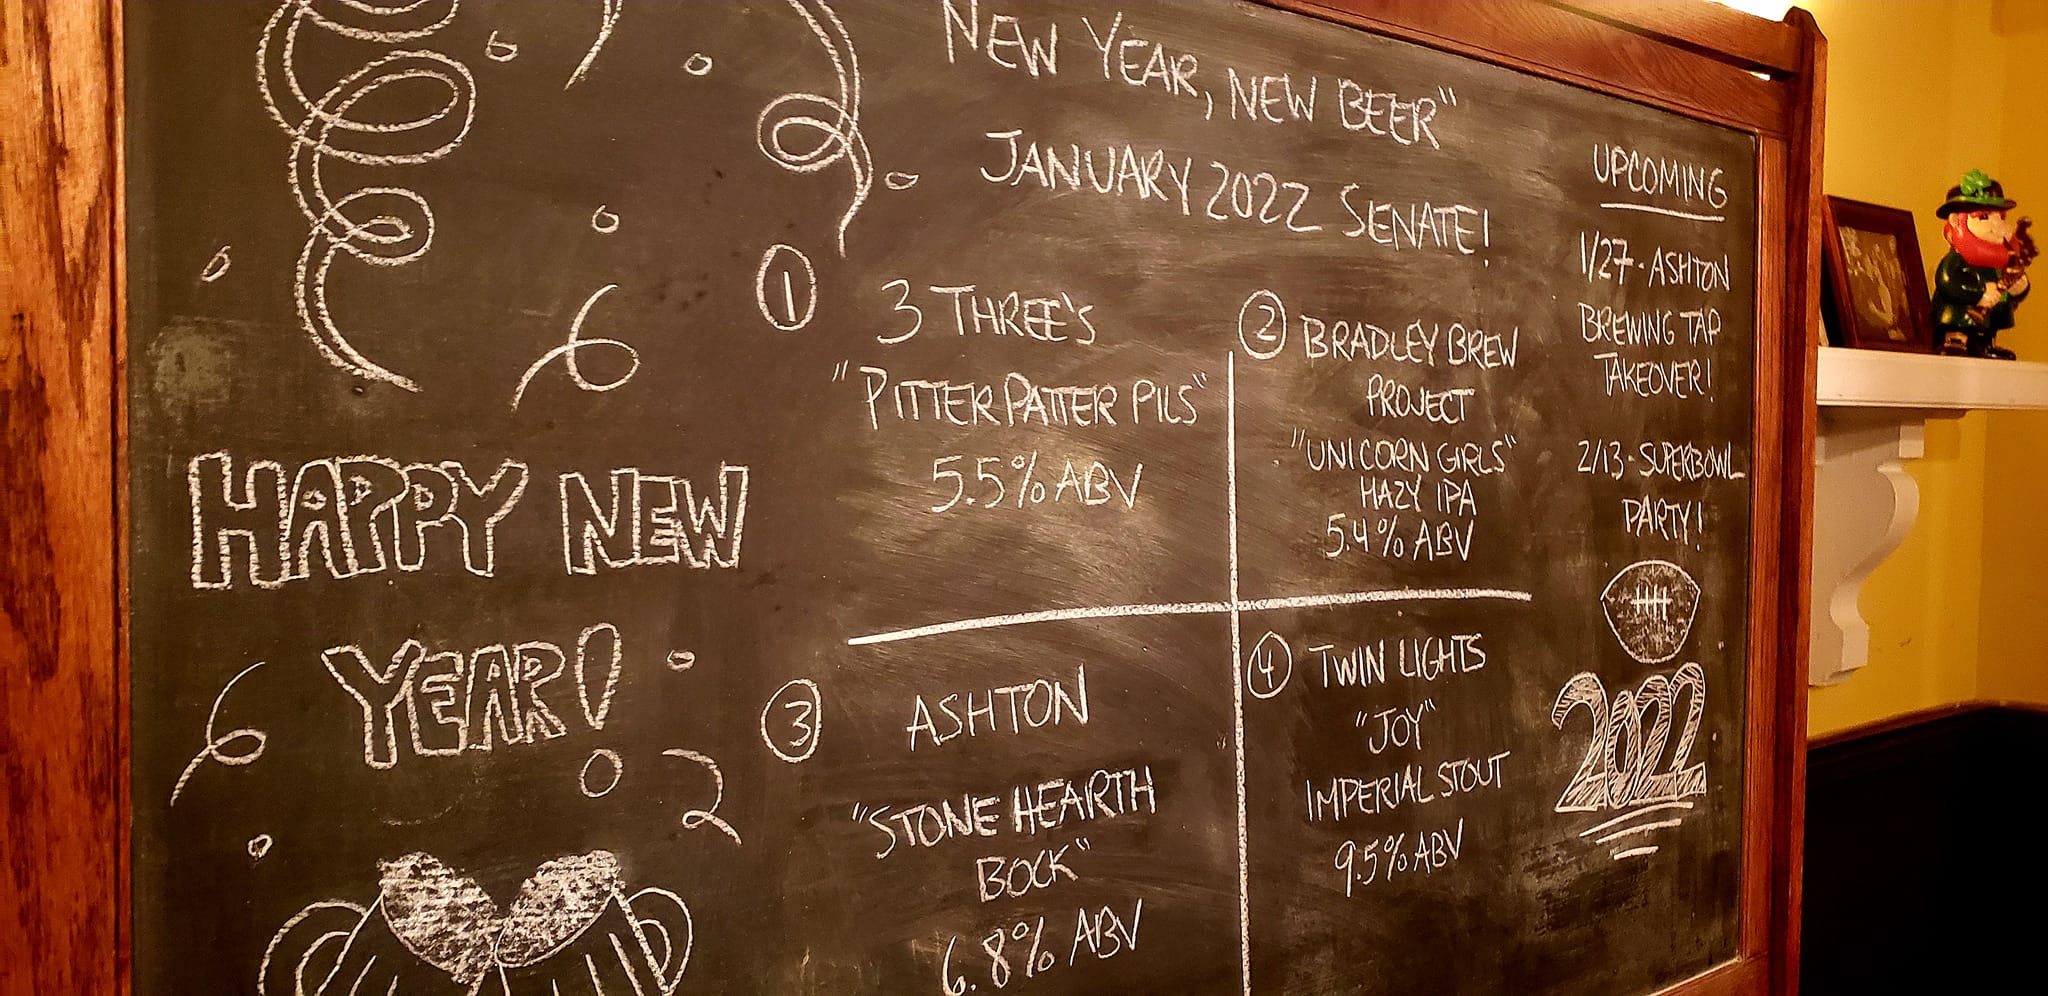 NEW YEAR, NEW BEER"
JANUARY 2022 SENATE!
HAPPY NEW
YEAR!
1
3 THREE'S
"PITTER PATTER PILS"
5.5% ABV
2
BRADLEY BREW
PROJECT
"UNICORN GIRLS"
HAZY IPA
5.4% ABV
3
ASHTON
"STONE HEARTH
BOCK"
6.8% ABV
4
TWIN LIGHTS
"JOY"
IMPERIAL STOUT
9.5% ABV
UPCOMING
1/27 - ASHTON
BREWING TAP
TAKEOVER!
2/13 - SUPERBOWL
PARTY!
2022